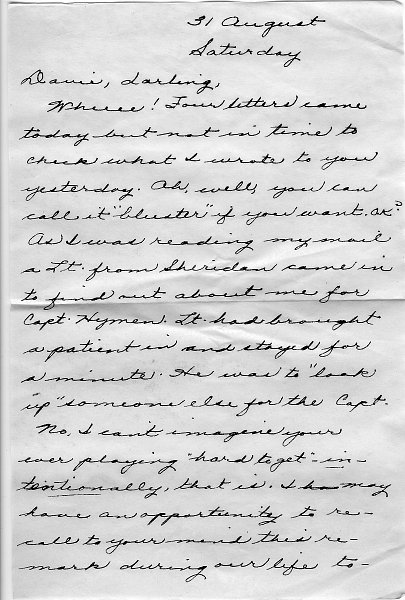 31 August
Saturday
Davie, darling,
Wheeee! Four letters came
today but not in time to
check what I wrote to you
yesterday. Ah, well, you can
call it "bluster" if you want. OK?
As I was reading my mail
a Lt. from Sheridan came in
to find out about me for
Capt. Hymen. Lt. had brought
a patient in and stayed for
a minute. He was to "look
up" someone else for the Capt.
No, I can't imagine your
ever playing "hard to get" - in-
tentionally, that is. I may
have an opportunity to re-
call to your mind this re-
mark during our life to-